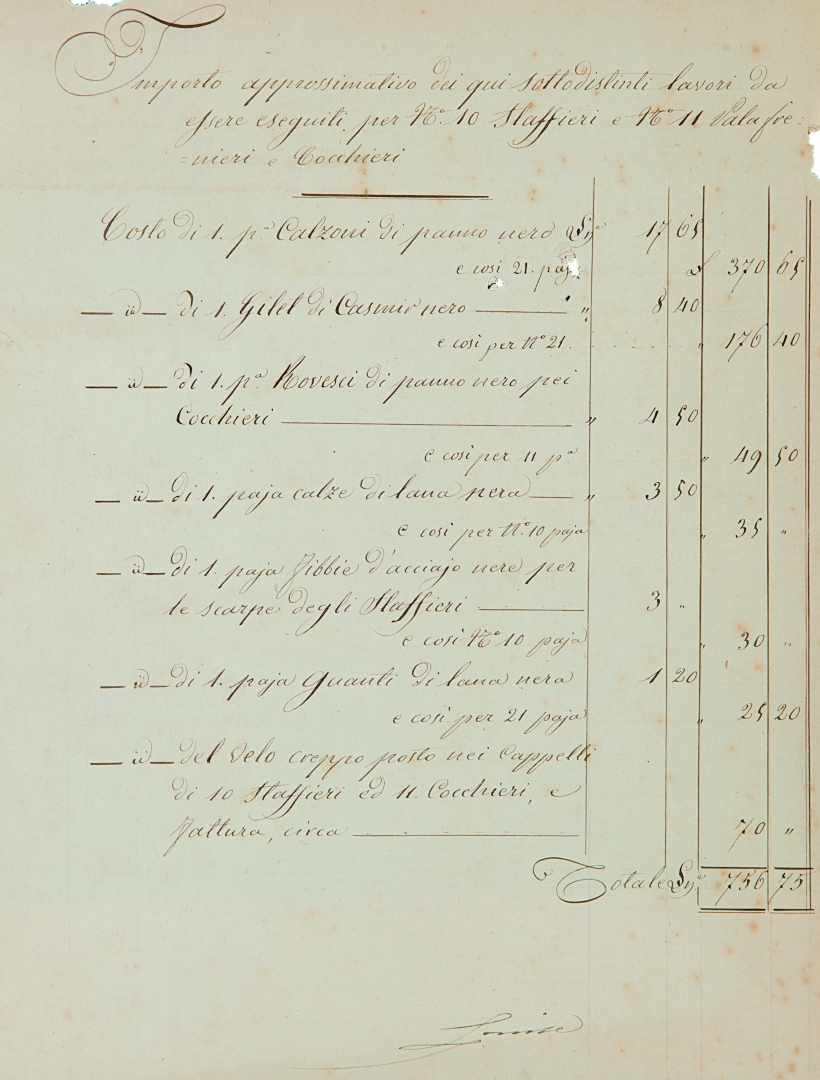 Importo approssimativo dei qui sottodistinti lavori da
essere eseguiti per N.º 10 Staffieri e N.º 11 Palafre=
=nieri e Cocchieri
Costo di 1. pª Calzoni di panno nero Lnº 17 65
e così 21. paja £ 370 65
— ,, — di 1. Gilet di Casmir nero ,, 8 40
e così per Nº 21. ,, 176 40
— ,, — di 1. pª Rovesci di panno nero pei
Cocchieri ,, 4 50
e così per 11 pª ,, 49 50
— ,, — di 1. paja calze di lana nera ,, 3 50
e così per N.º 10 paja ,, 35 ,,
— ,, — di 1. paja Fibbie d'acciajo nere per
le scarpe degli Staffieri 3 ,,
e così Nº 10 paja ,, 30 ,,
— ,, — di 1. paja Guanti di lana nera 1 20
e così per 21 paja ,, 25 20
— ,, — del Velo creppo posto nei Cappelli
di 10 Staffieri ed 11. Cocchieri, e
Fattura, circa 70 ,,
Totale Lnº 756 75